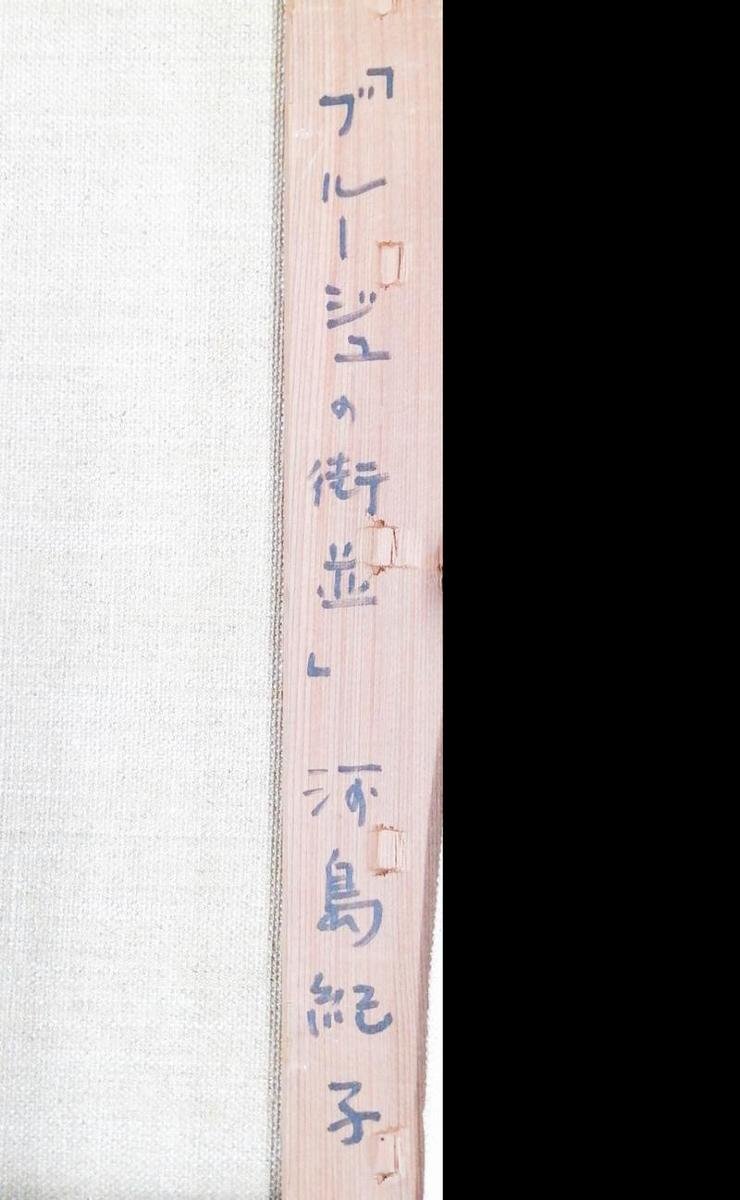 「ブルージュの街並」 河島紀子